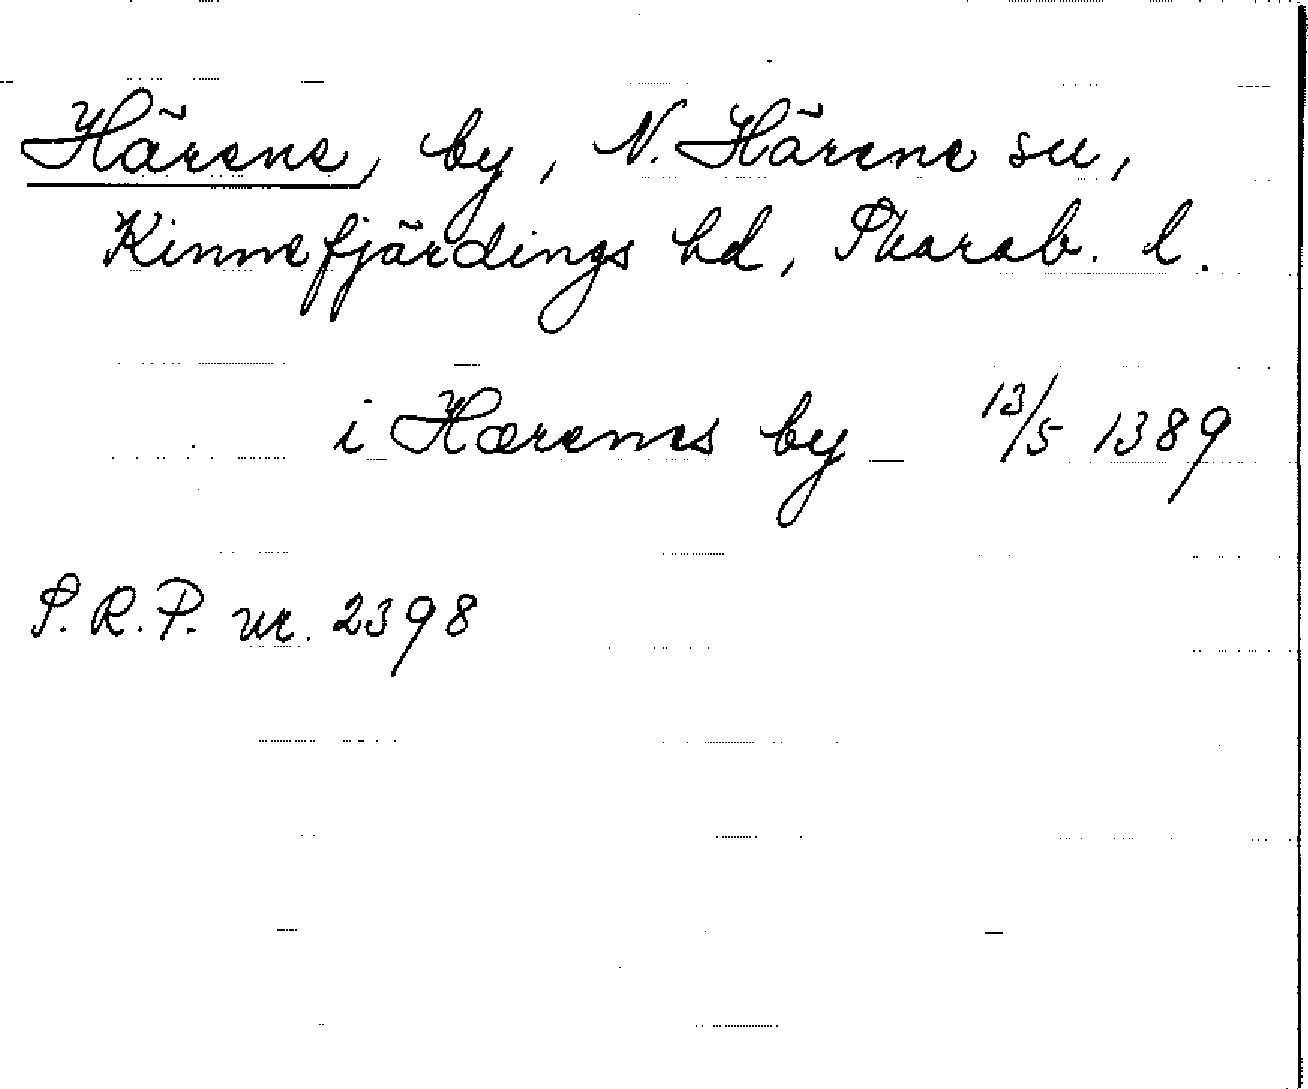 Härene, by, N. Härene sn,
Kinnefjärdings hd, Skarab. l.
i Hærenes by 13/5 1389
S.R.P. nr. 2398